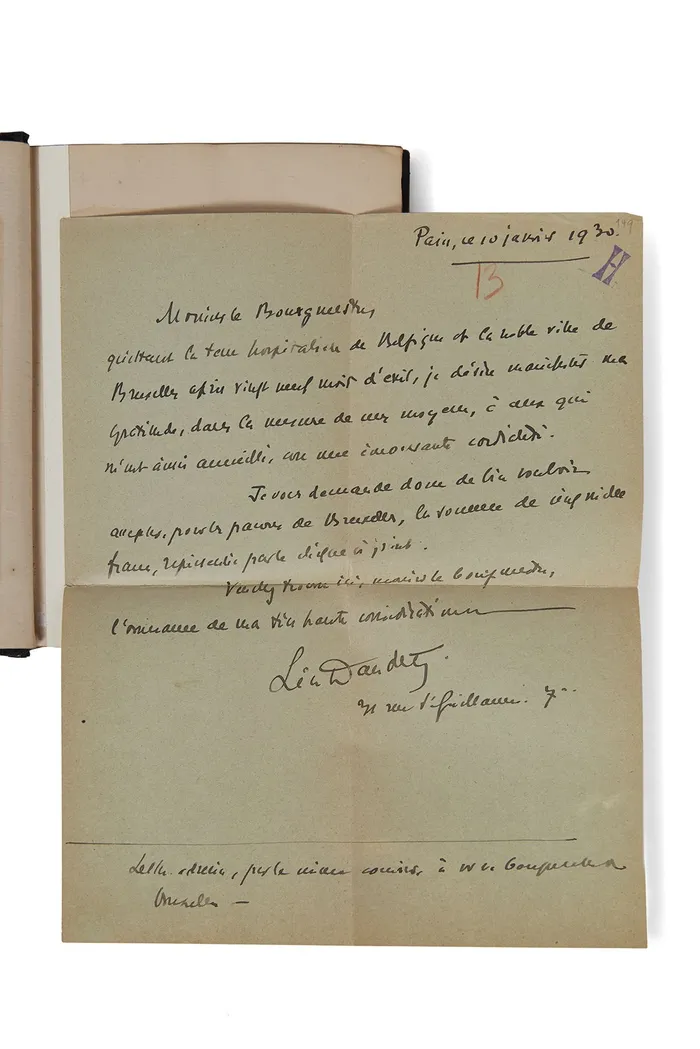 149
Paris, ce 10 janvier 1930.
13
H
Monsieur le Bourgmestre,
quittant la terre hospitalière de Belgique et la noble ville de
Bruxelles après vingt neuf mois d'exil, je désire manifester ma
gratitude, dans la mesure de mes moyens, à ceux qui
m'ont ainsi accueilli, avec une émouvante cordialité.
Je vous demande donc de bien vouloir
accepter, pour les pauvres de Bruxelles, la somme de cinq mille
francs, représentée par le chèque ci joint.
Veuillez trouver ici, monsieur le bourgmestre,
l'assurance de ma très haute considération
Léon Daudet
31 rue St Guillaume. 7e
Lettre adressée, par le même courrier, à bourgmestre
Bruxelles —